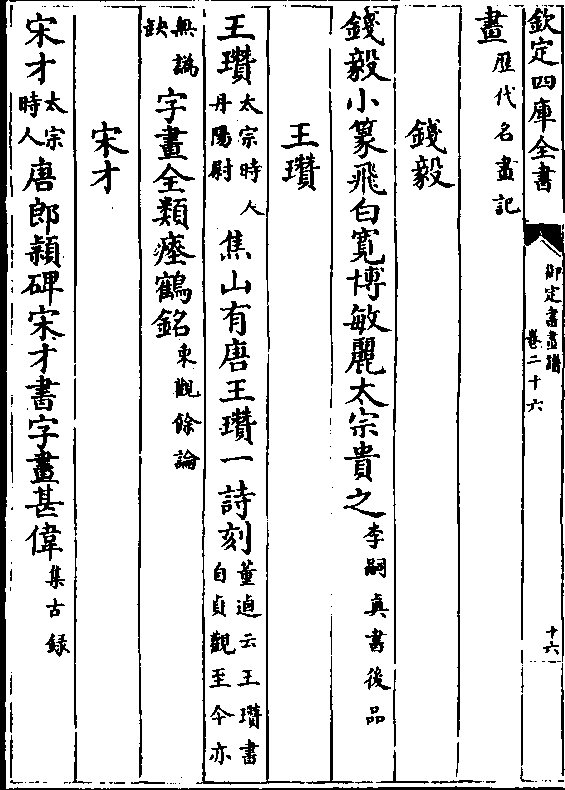 欽定四庫全書
御定書畫譜
卷二十六
十六
畫歷代名畫記
錢毅
錢毅小篆飛白寛博敏麗太宗貴之李嗣真書後品
王瓚
王瓚太宗時人丹陽尉焦山有唐王瓚一詩刻董逌云王瓚書自貞觀至今亦
無譌缺字畫全類瘞鶴銘東觀餘論
宋才
宋才太宗時人唐郎穎碑宋才書字畫甚偉集古録